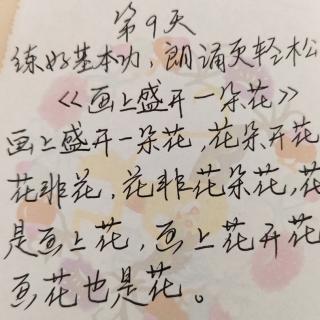 第9天
练好基本功,朗诵更轻松
《画上盛开一朵花》
画上盛开一朵花,花朵开花
花非花,花非花朵花,花
是画上花,画上花开花
画花也是花。